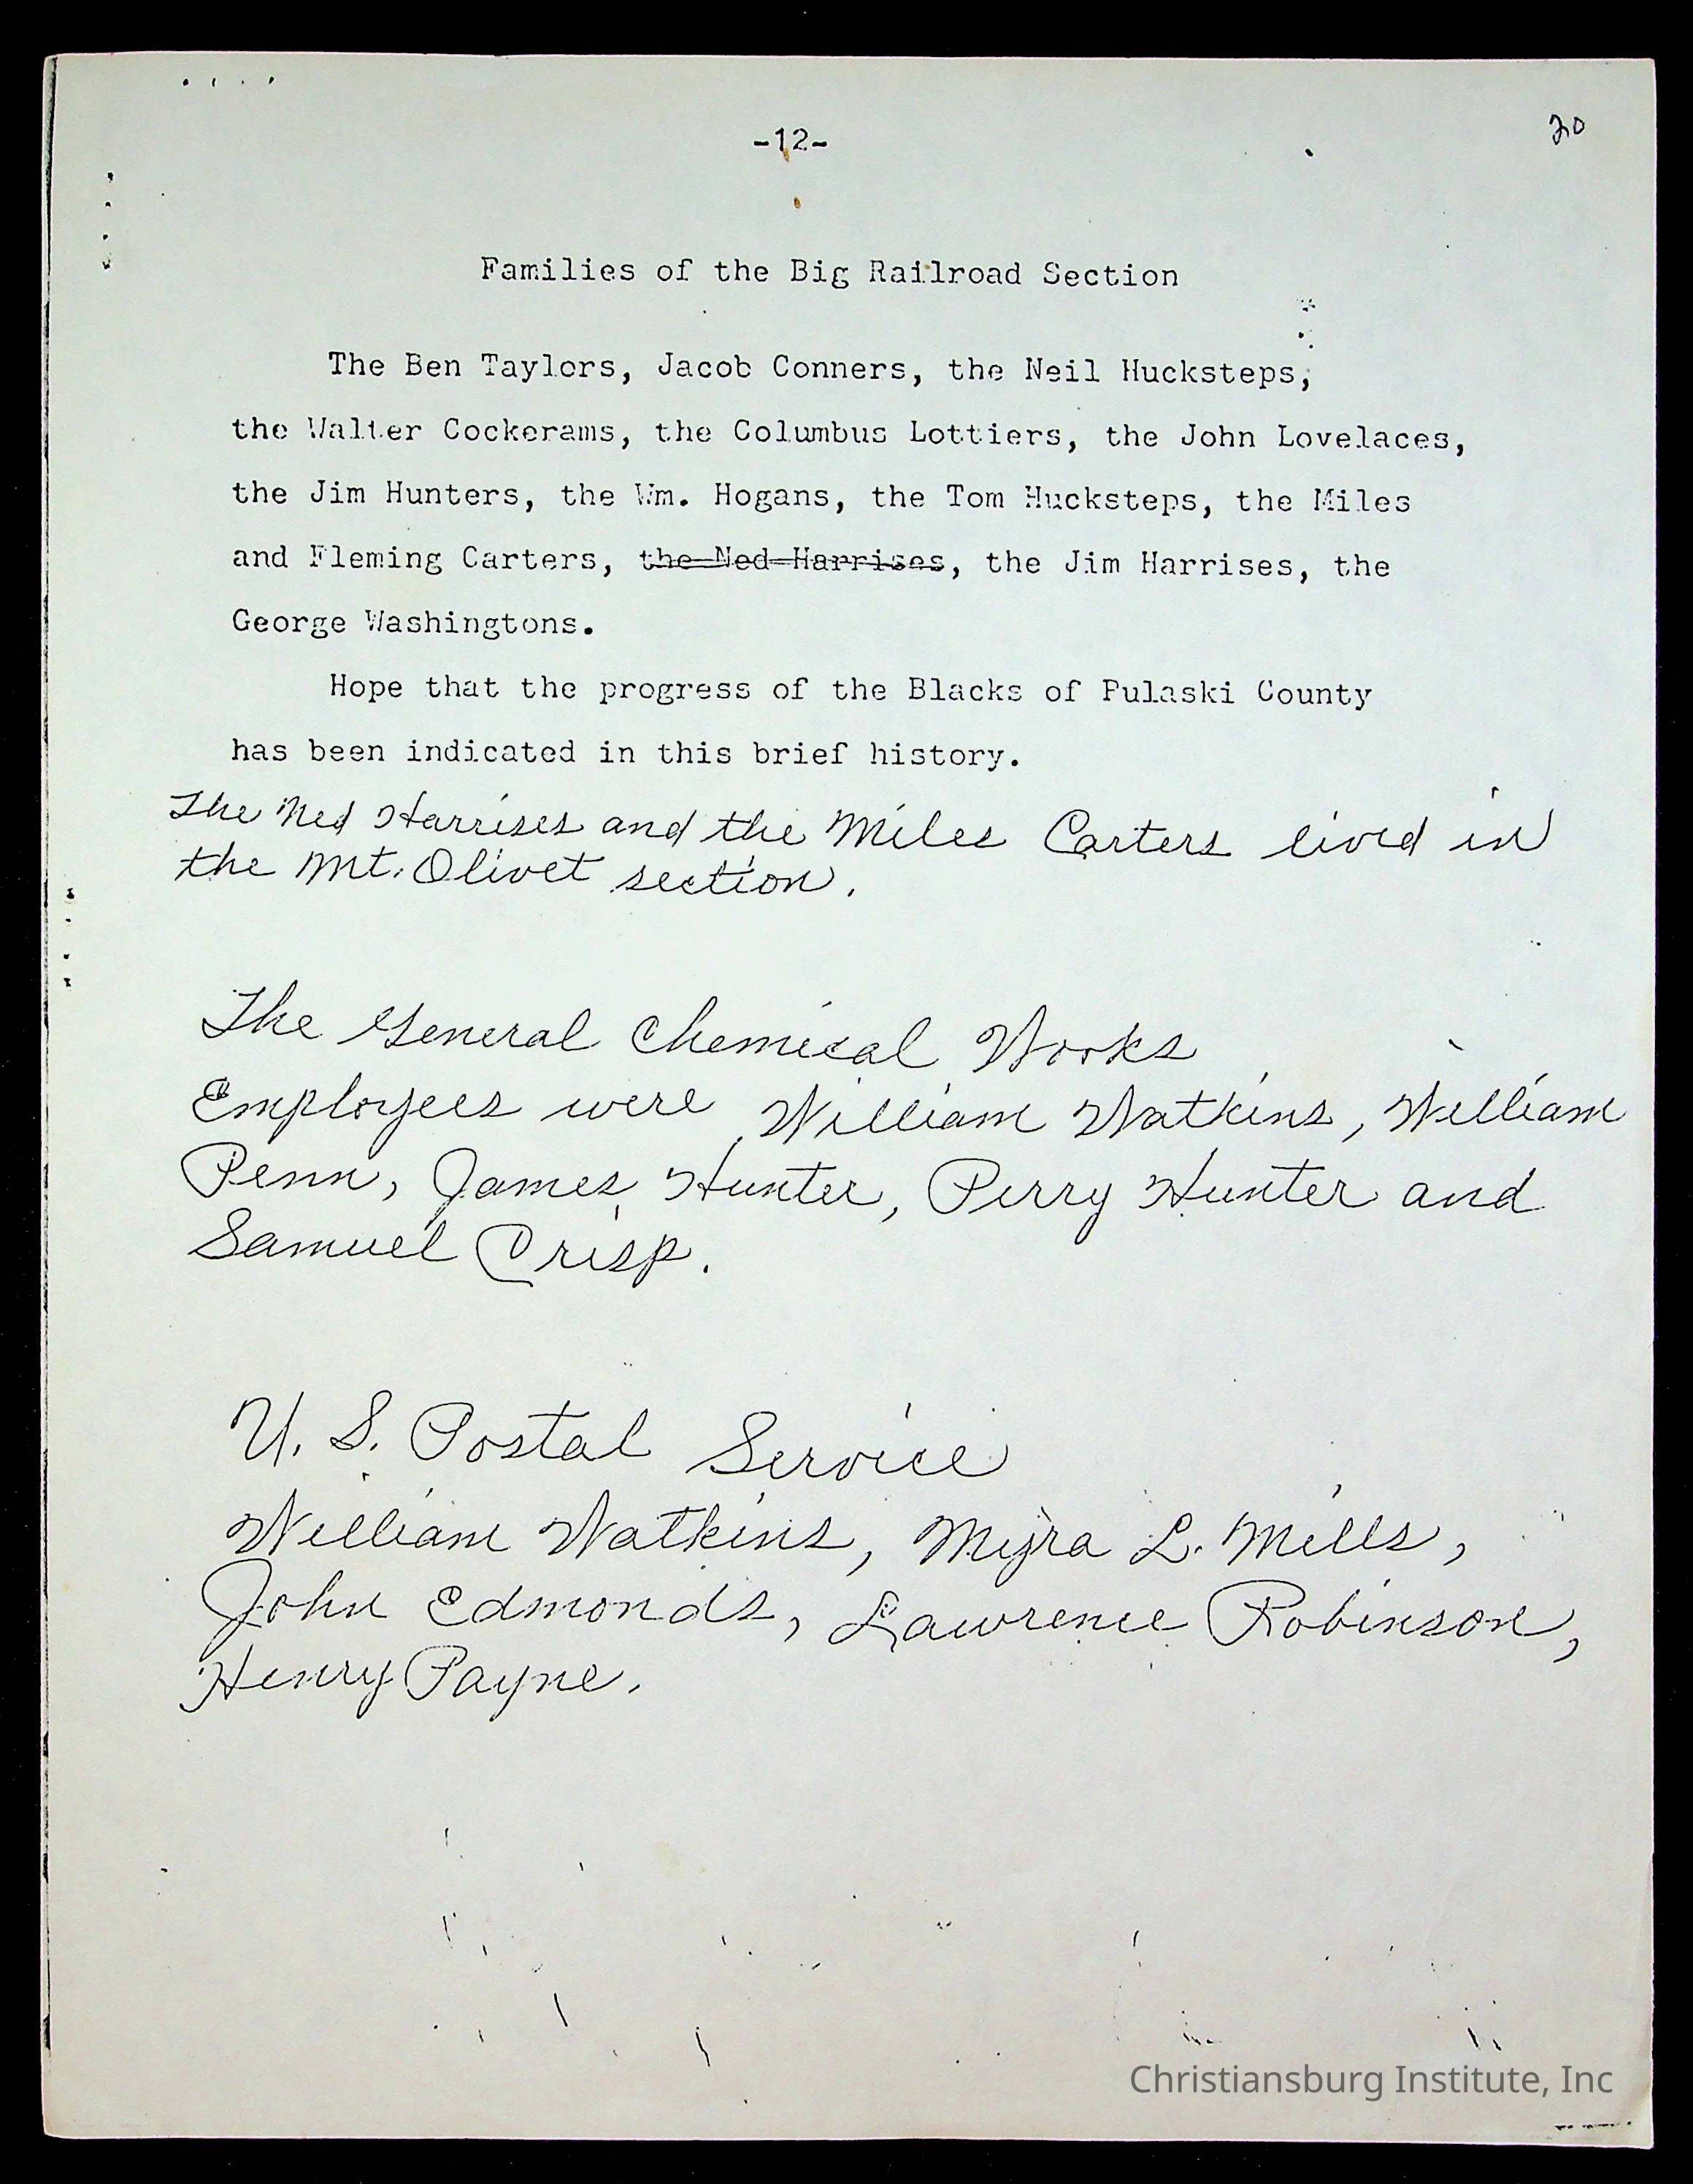 -12-
20
Families of the Big Railroad Section
The Ben Taylors, Jacob Conners, the Neil Hucksteps,
the Walter Cockerams, the Columbus Lottiers, the John Lovelaces,
the Jim Hunters, the Wm. Hogans, the Tom Hucksteps, the Miles
and Fleming Carters, the Ned Harrises, the Jim Harrises, the
George Washingtons.
Hope that the progress of the Blacks of Pulaski County
has been indicated in this brief history.
The Ned Harrises and the Miles Carters lived in
the Mt. Olivet section.
The General Chemical Works
Employees were William Watkins, William
Penn, James Hunter, Perry Hunter and
Samuel Crisp.
U. S. Postal Service
William Watkins, Myra L. Mills,
John Edmonds, Lawrence Robinson,
Henry Payne.
Christiansburg Institute, Inc